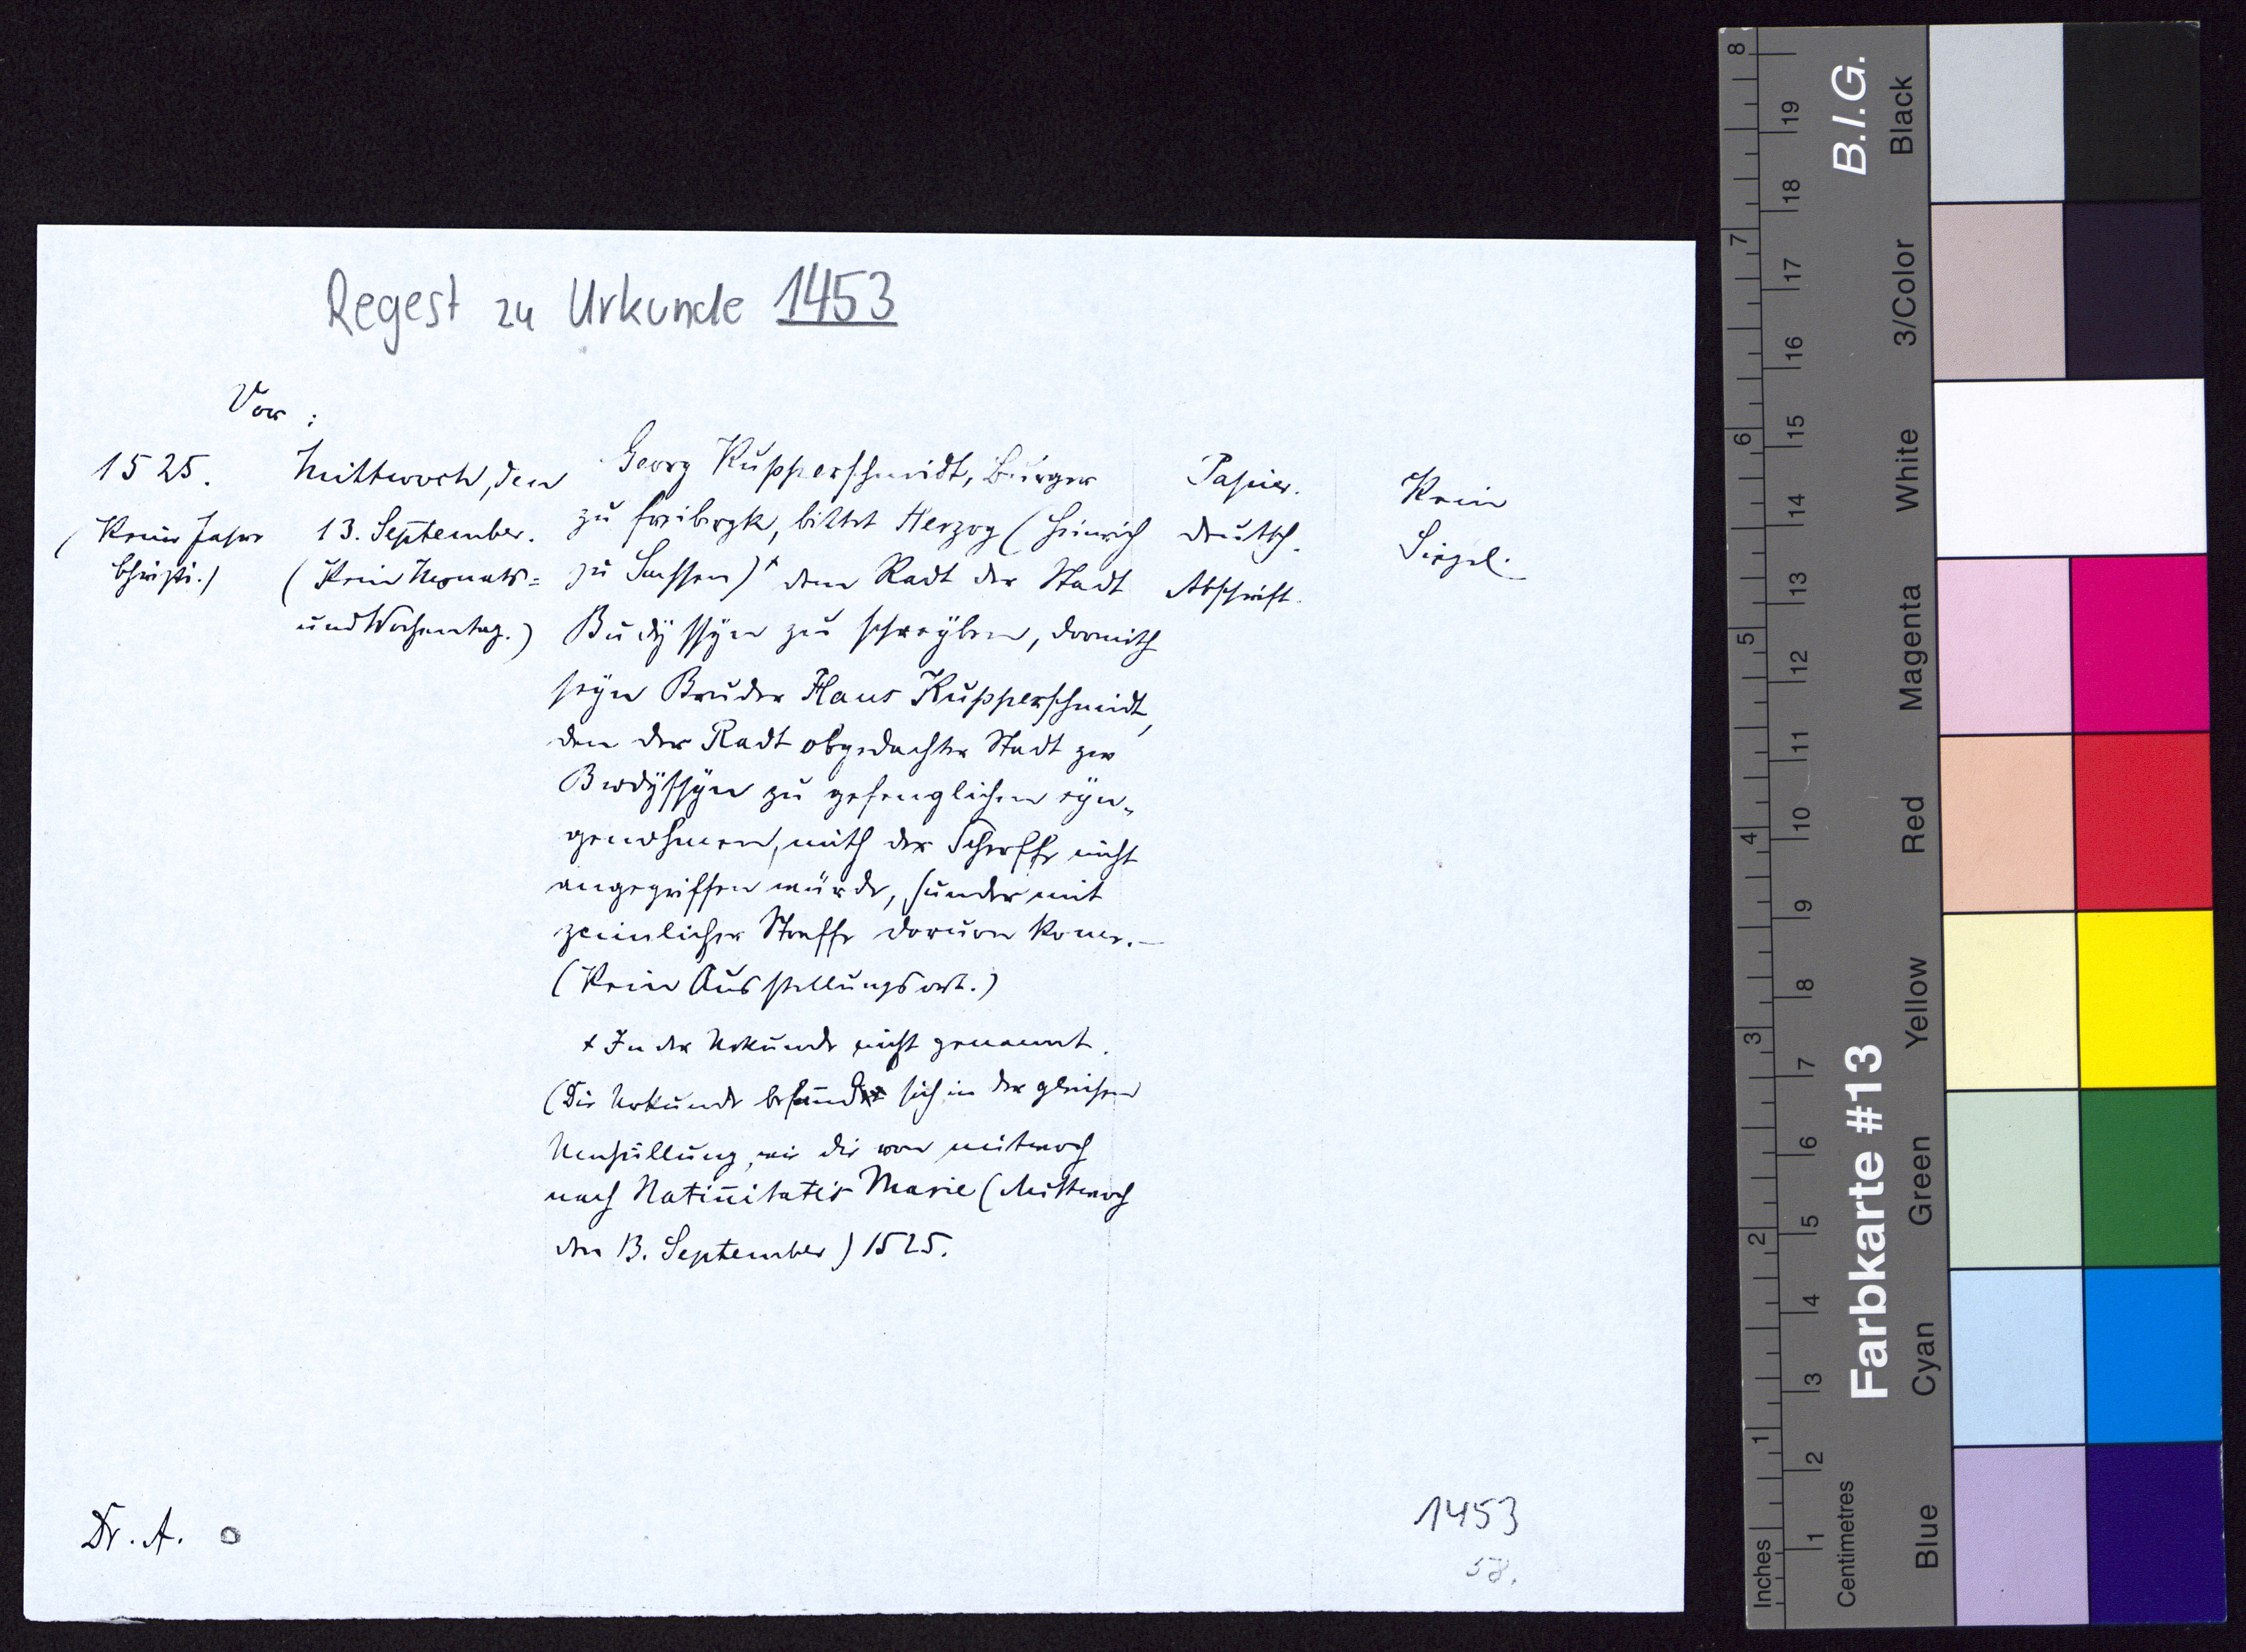 Regest zu Urkunde 1453
Vor :
1525.
(Keine Jahre
Christi.)
Mittwoch, den
13. September.
(Kein Monats=
und Wochentag.)
Georg Kupperschmidt, Burger
zu freibergk, bittet Herzog (Heinrich
zu Sachssen)+ dem Radt der Stadt
Budÿssÿn zu schreÿben, domith
seÿn Bruder Hans Kupperschmidt,
den der Radt obgedachter Stadt zw
Bwdÿssÿn zu gefenglichen eÿn-
genohmen, mith der Scherffe nicht
angegriffen würde, sunder mit
zcimlicher Straffe doruon kome.—
(Kein Ausstellungsort.)
+ In der Urkunde nicht genannt.
(Die Urkunde befand sich in der gleichen
Umhüllung, wie die von mitwoch
nach Natiuitatis Marie (Mittwoch
den 13. September) 1525.
Papier.
Deutsch.
Abschrift.
Kein
Siegel.
Dr. A.
1453
58.
B.I.G.
Farbkarte #13
Black
3/Color
White
Magenta
Red
Yellow
Green
Cyan
Blue
8
7
6
5
4
3
2
1
Inches
19
18
17
16
15
14
13
12
11
10
9
8
7
6
5
4
3
2
1
Centimetres